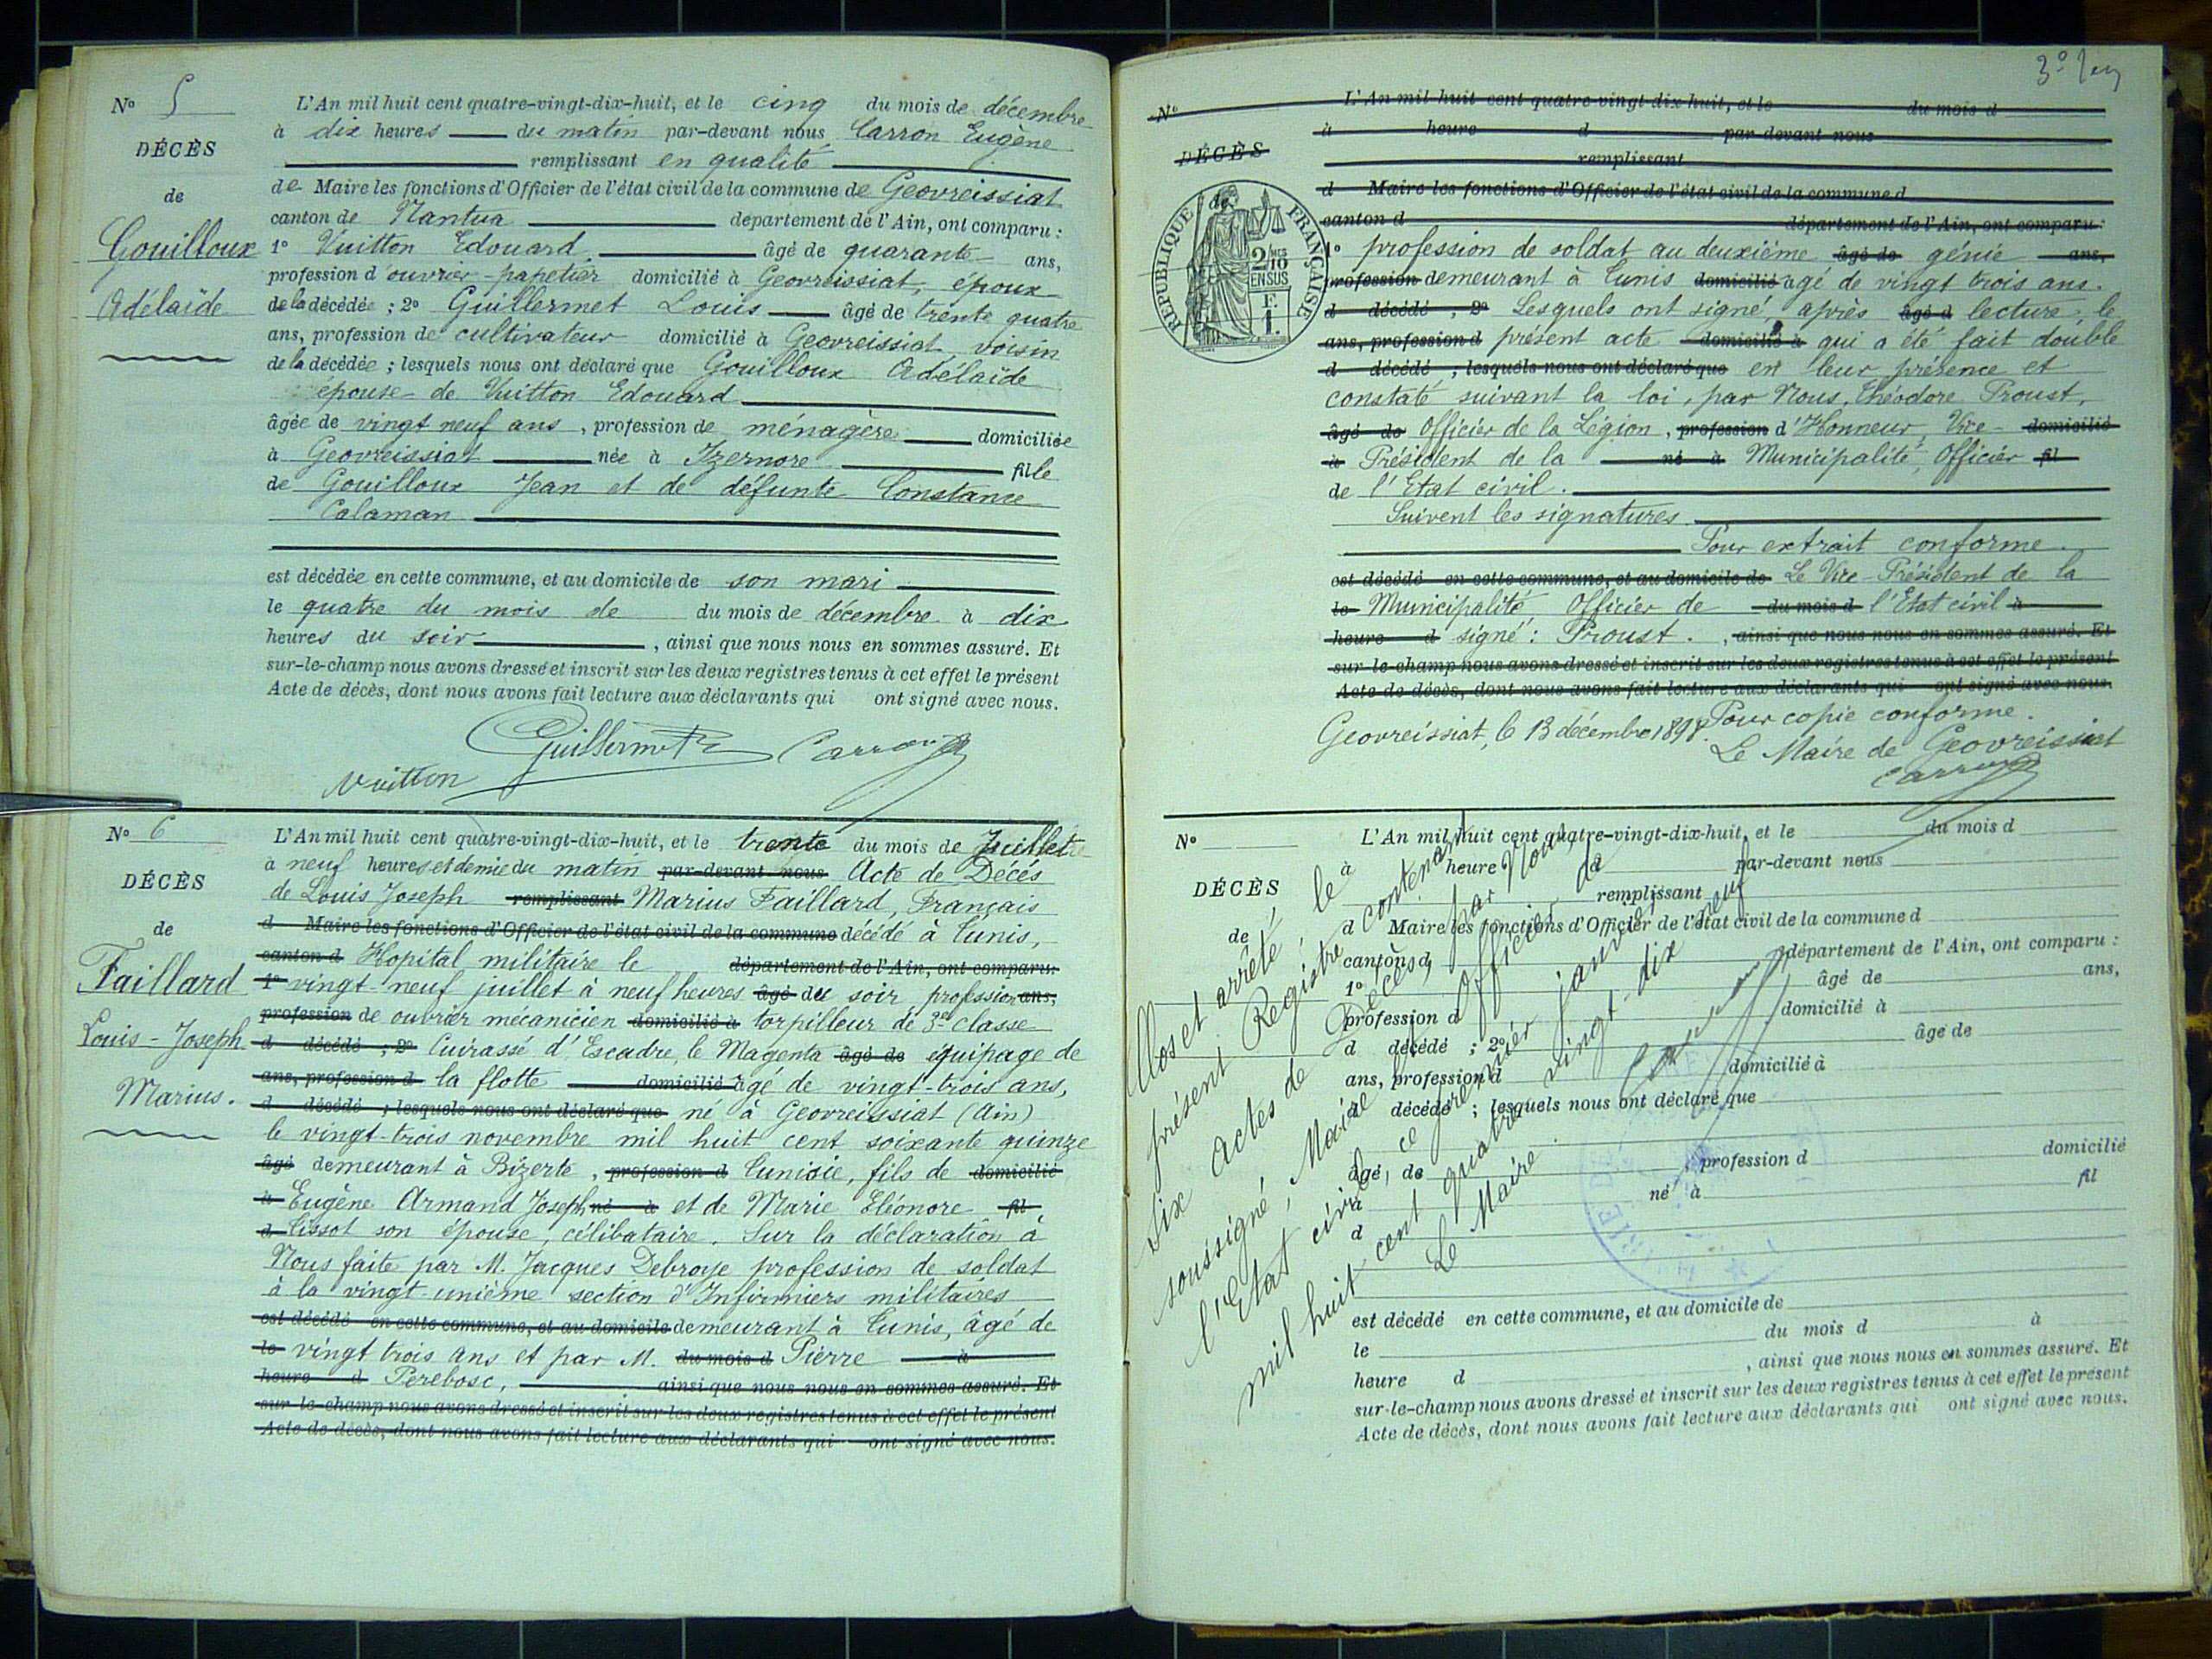 N° 5
DÉCÈS
de
Gouilloux
Adélaïde
L'An mil huit cent quatre-vingt-dix-huit, et le cinq du mois de décembre
à dix heures du matin par-devant nous Carron Eugène
remplissant en qualité
de Maire les fonctions d'Officier de l'état civil de la commune de Geovreissiat
canton de Nantua département de l'Ain, ont comparu :
1° Vuitton Edouard âgé de quarante ans,
profession d'ouvrier-papetier domicilié à Geovreissiat, époux
de la décédée ; 2° Guillermet Louis âgé de trente quatre
ans, profession de cultivateur domicilié à Geovreissiat, voisin
de la décédée ; lesquels nous ont déclaré que Gouilloux Adélaïde
épouse de Vuitton Edouard
âgée de vingt neuf ans, profession de ménagère domiciliée
à Geovreissiat née à Izernore fille
de Gouilloux Jean et de défunte Constance
Calaman
est décédée en cette commune, et au domicile de son mari
le quatre du mois de du mois de décembre à dix
heures du soir, ainsi que nous nous en sommes assuré. Et
sur-le-champ nous avons dressé et inscrit sur les deux registres tenus à cet effet le présent
Acte de décès, dont nous avons fait lecture aux déclarants qui ont signé avec nous.
Guillermet Carron
Vuitton
N° 6
DÉCÈS
de
Faillard
Louis-Joseph
Marius.
L'An mil huit cent quatre-vingt-dix-huit, et le trente du mois de Juillet
à neuf heures et demie du matin par-devant nous Acte de Décés
de Louis Joseph remplissant Marius Faillard, Français
d Maire les fonctions d'Officier de l'état civil de la commune décédé à Tunis,
canton d Hopital militaire le département de l'Ain, ont comparu:
1° vingt-neuf juillet à neuf heures âgé de du soir, profession ans,
profession de ouvrier mécanicien domicilié à torpilleur de 3me classe
d décédé ; 2° Cuirassé d'Escadre, le Magenta âgé de équipage de
ans, profession d la flotte domicilié âgé de vingt-trois ans,
d décédé ; lesquels nous ont déclaré que né à Geovreissiat (Ain)
le vingt-trois novembre mil huit cent soixante quinze
âgé demeurant à Bizerte, profession d Tunisie, fils de domicilié
à Eugène Armand Joseph né à et de Marie Eléonore fil
d Tissot son épouse, célibataire. Sur la déclaration à
Nous faite par M. Jacques Debroye profession de soldat
à la vingt-unième section d'Infirmiers militaires
est décédé en cette commune, et au domicile demeurant à Tunis, âgé de
le vingt trois ans et par M. du mois d Pierre à
heure d Perebosc, ainsi que nous nous en sommes assuré. Et
sur-le-champ nous avons dressé et inscrit sur les deux registres tenus à cet effet le présent
Acte de décès, dont nous avons fait lecture aux déclarants qui ont signé avec nous.
N°
DÉCÈS
de
RÉPUBLIQUE FRANÇAISE
2/10MES
EN SUS
F. 1.
L'An mil huit cent quatre-vingt-dix-huit, et le du mois d
à heure d par-devant nous
remplissant
d Maire les fonctions d'Officier de l'état civil de la commune d
canton d département de l'Ain, ont comparu :
1° profession de soldat au deuxième âgé de génie ans,
profession demeurant à Tunis domicilié âgé de vingt trois ans.
d décédé ; 2° Lesquels ont signé, après âgé d lecture, le
ans, profession d présent acte domicilié à qui a été fait double
d décédé ; lesquels nous ont déclaré que en leur présence et
constaté suivant la loi, par Nous, Théodore Proust,
âgé de Officier de la Légion, profession d'Honneur, Vice- domicilié
à Président de la né à Municipalité, Officier fil
de l'Etat civil.
Suivent les signatures.
Pour extrait conforme.
est décédé en cette commune, et au domicile de Le Vice-Président de la
le Municipalité Officier de du mois d l'Etat civil à
heure d signé : Proust., ainsi que nous nous en sommes assuré. Et
sur-le-champ nous avons dressé et inscrit sur les deux registres tenus à cet effet le présent
Acte de décès, dont nous avons fait lecture aux déclarants qui ont signé avec nous.
Geovreissiat, le 13 décembre 1898. Pour copie conforme.
Le Maire de Geovreissiat
Carron
N°
DÉCÈS
de
L'An mil huit cent quatre-vingt-dix-huit, et le du mois d
à heure d par-devant nous
remplissant
d Maire les fonctions d'Officier de l'état civil de la commune d
canton d département de l'Ain, ont comparu :
1° âgé de ans,
profession d domicilié à
d décédé ; 2° âgé de
ans, profession d domicilié à
d décédé ; lesquels nous ont déclaré que
âgé, de profession d domicilié
à né à fil
d
est décédé en cette commune, et au domicile de
le du mois d à
heure d , ainsi que nous nous en sommes assuré. Et
sur-le-champ nous avons dressé et inscrit sur les deux registres tenus à cet effet le présent
Acte de décès, dont nous avons fait lecture aux déclarants qui ont signé avec nous.
Clos et arrêté le
présent Registre contenant
six actes de Décès, par Nous
soussigné, Maire, Officier de
l'Etat civil, ce premier janvier
mil huit cent quatre vingt-dix neuf
Le Maire